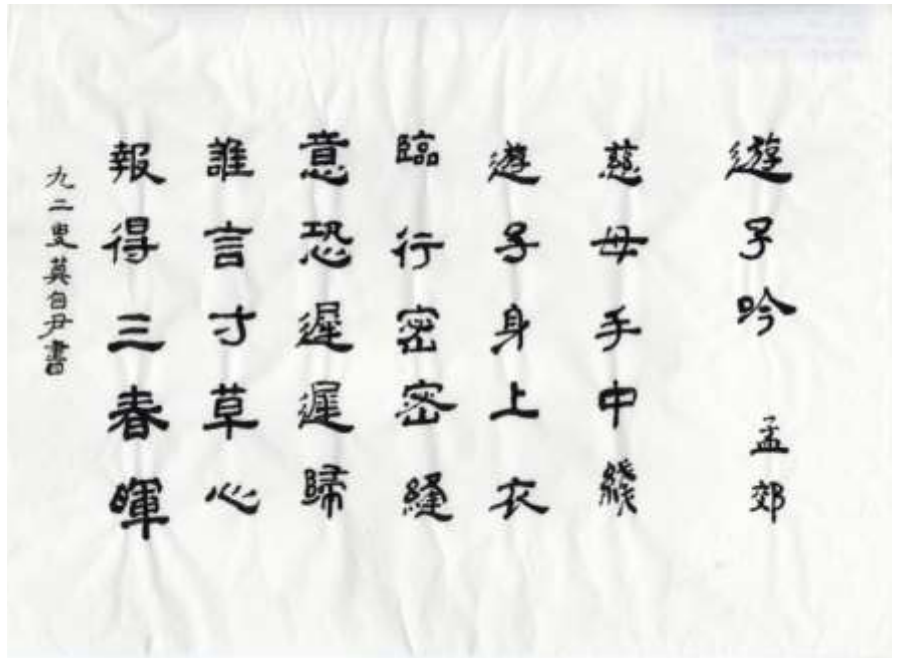 遊子吟 孟郊
慈母手中綫
遊子身上衣
臨行密密縫
意恐遲遲歸
誰言寸草心
報得三春暉
九二叟莫自尹書